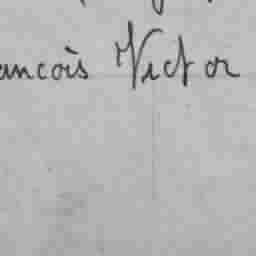 ancois Victor